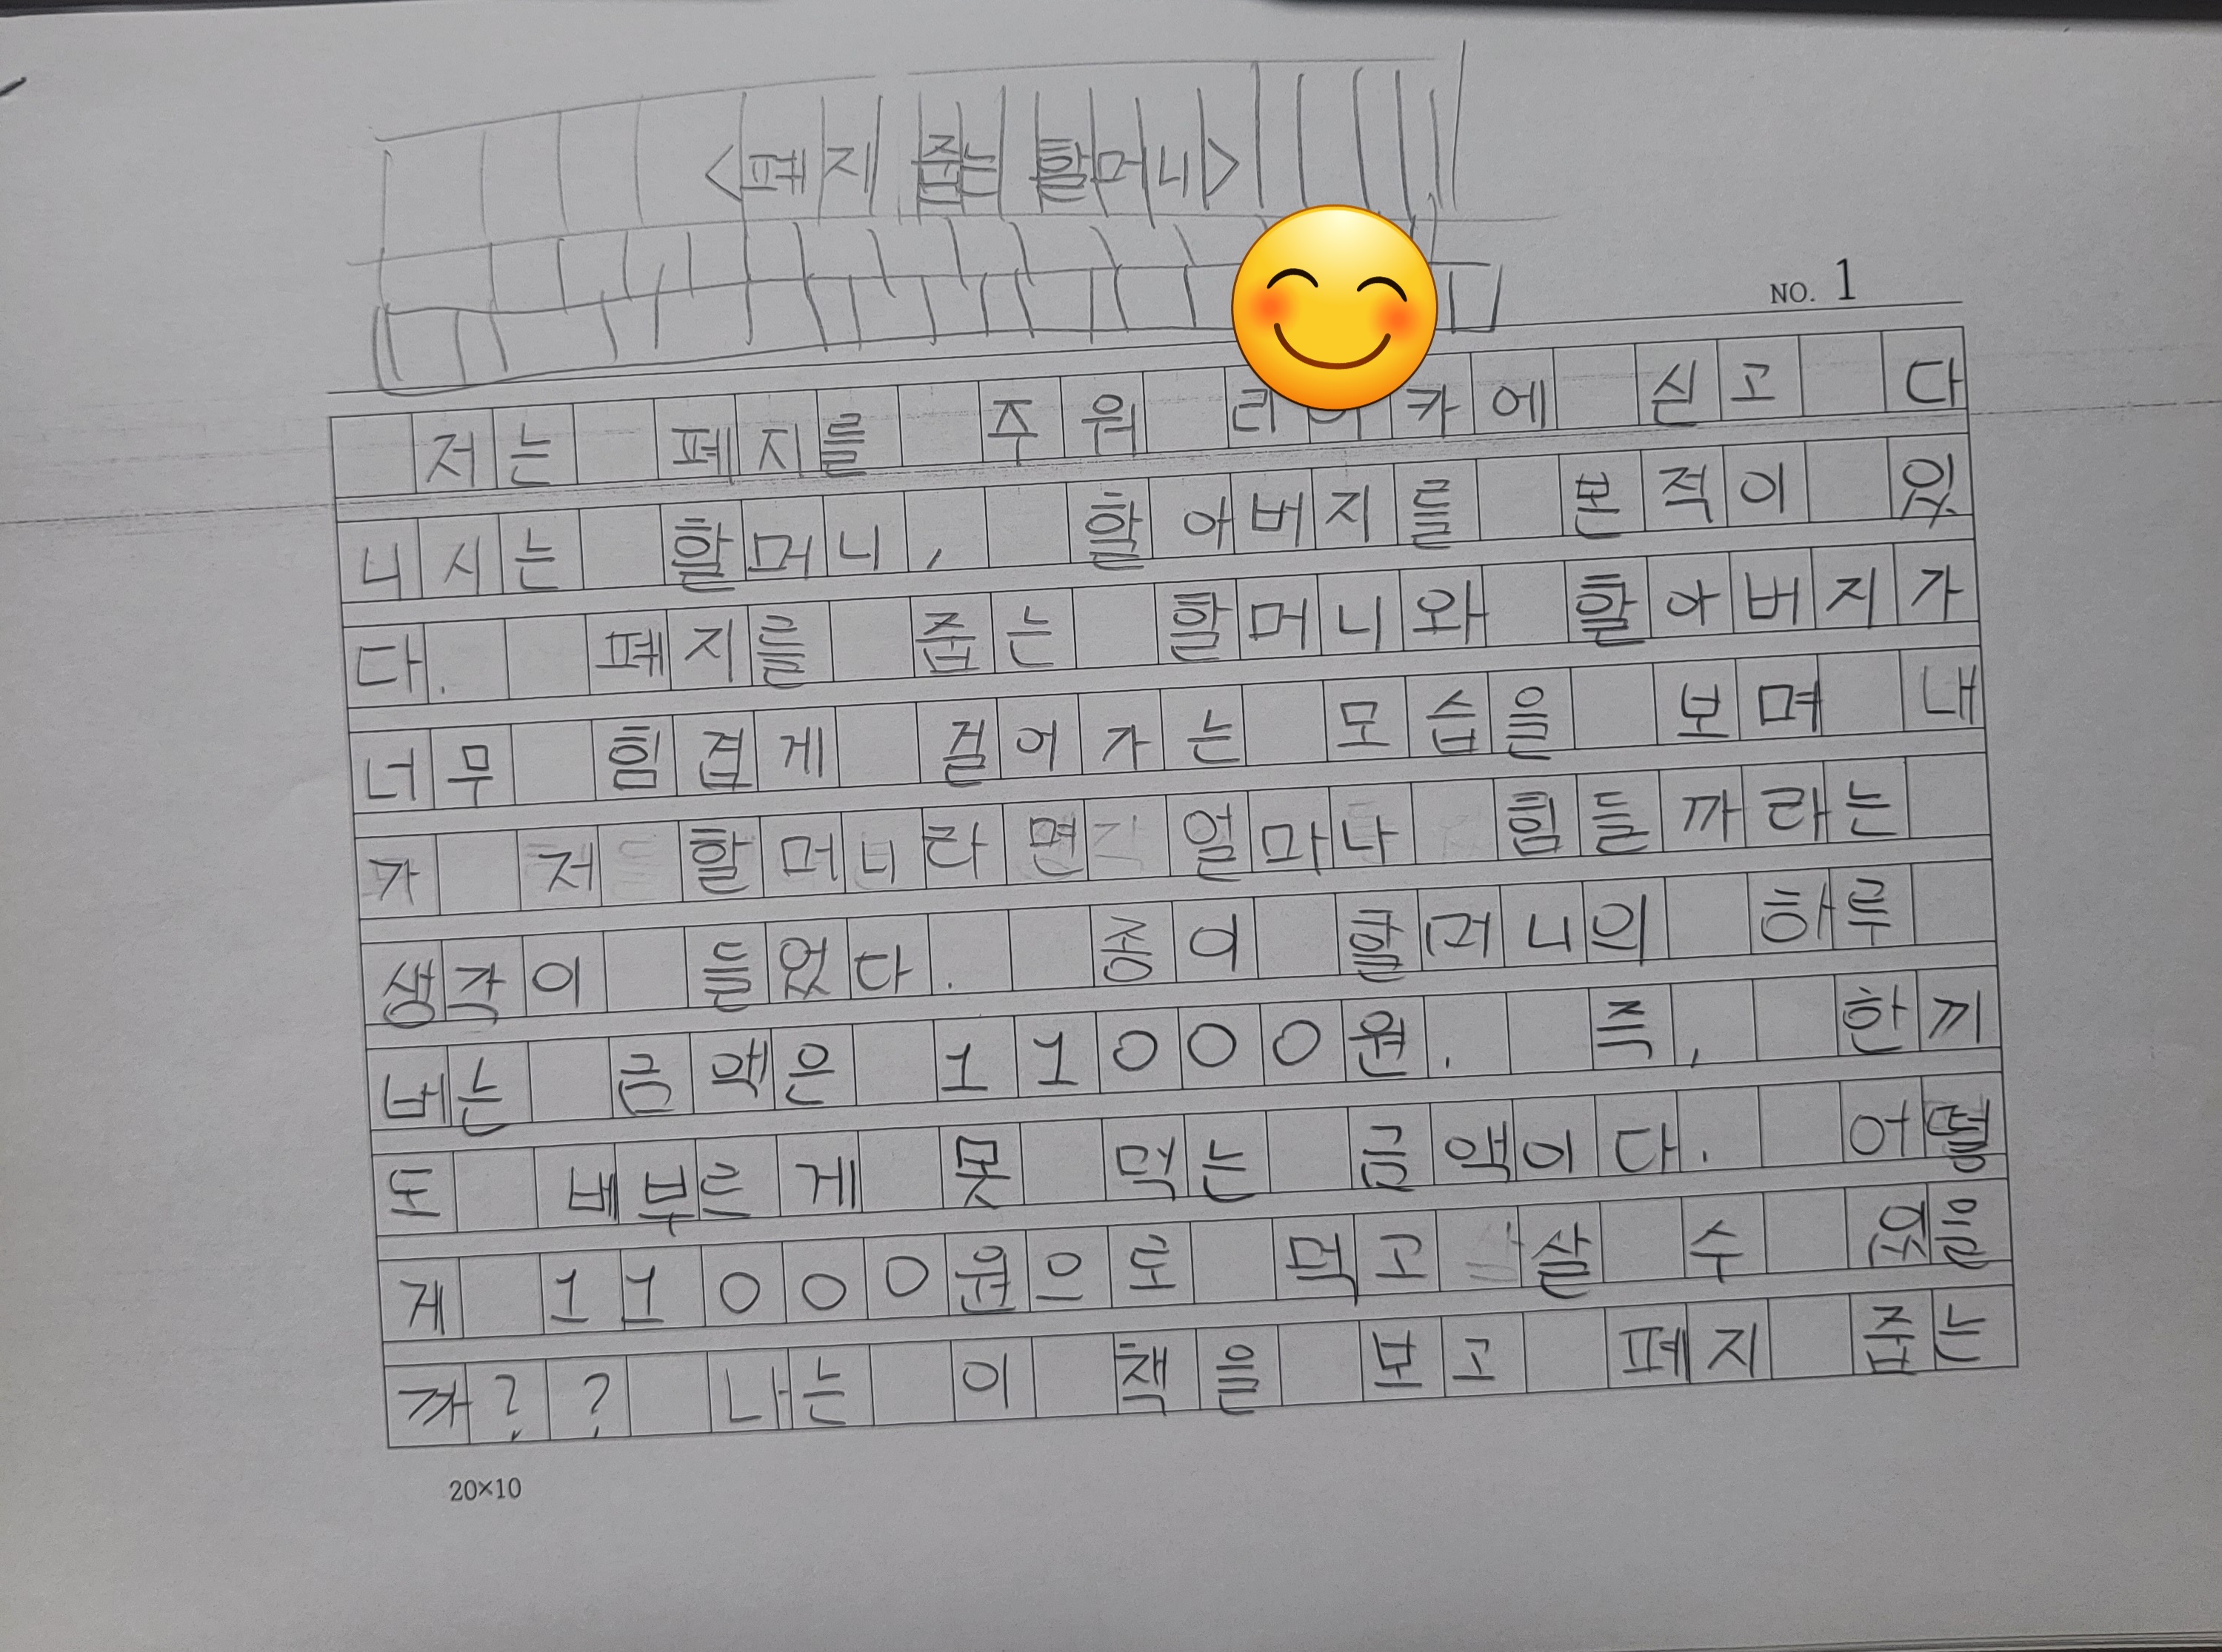 <폐지 줍는 할머니>
NO. 1
저는 폐지를 주워 리어카에 싣고 다
니시는 할머니, 할아버지를 본적이 있
다. 폐지를 줍는 할머니와 할아버지가
너무 힘겹게 걸어가는 모습을 보며 내
가 저 할머니라면 얼마나 힘들까라는
생각이 들었다. 종이 할머니의 하루
버는 금액은 11000원. 즉, 한끼
도 배부르게 못 먹는 금액이다. 어떻
게 11000원으로 먹고 살 수 있을
까?? 나는 이 책을 보고 폐지 줍는
20×10